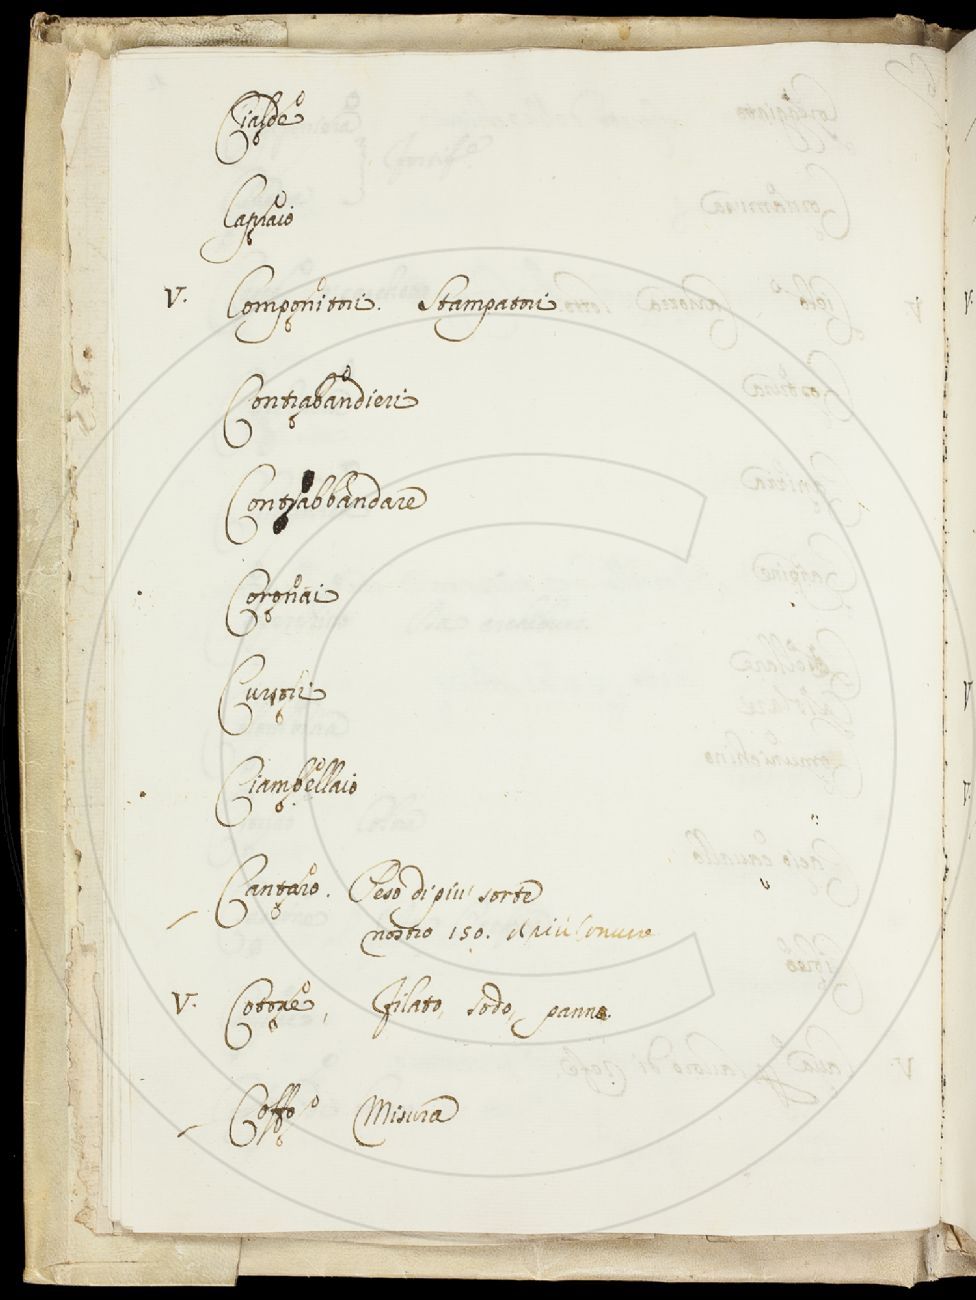 Cialde
Capraio
V. Componitori. Stampatori
Contrabandieri
Contrabbandare
Coronai
Ciambellaio
Cantaro. Peso di più sorte
nostro 150. e più
V. Cotone, filato, sodo, panno
Coffo Misura